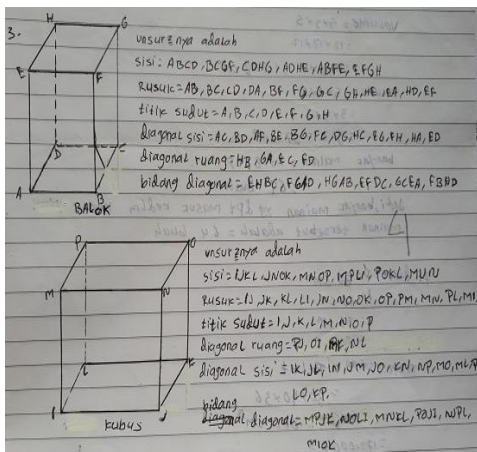 3.
H G
E F
D C
A B
BALOK
unsurznya adalah
sisi: ABCD, BCGF, CDHG, ADHE, ABFE, EFGH
Rusuk = AB, BC, CD, DA, BF, FG, GC, GH, HE, EA, HD, EF
titik sudut = A, B, C, D, E, F, G, H
diagonal sisi = AC, BD, AF, BE, BG, FC, DG, HC, EG, FH, HA, ED
diagonal ruang = HB, GA, EC, FD
bidang diagonal = EHBC, FGAD, HGAB, EFDC, GCEA, FBHD
P O
M N
L K
I J
kubus
unsurznya adalah
sisi = IJKL, JNOK, MNOP, MPLI, POKL,
Rusuk = IJ, JK, KL, LI, JN, NO, OK, OP, PM, MN, PL, MI
titik sudut = I, J, K, L, M, N, O, P
diagonal ruang = PJ, OI, NL
diagonal sisi = IK, JL, IN, JM, JO, KN, NP, MO, ML, P
LO, KP.
bidang
diagonal = MPJK, NOLI, MNKL, POJI, NJPL,
MIOK